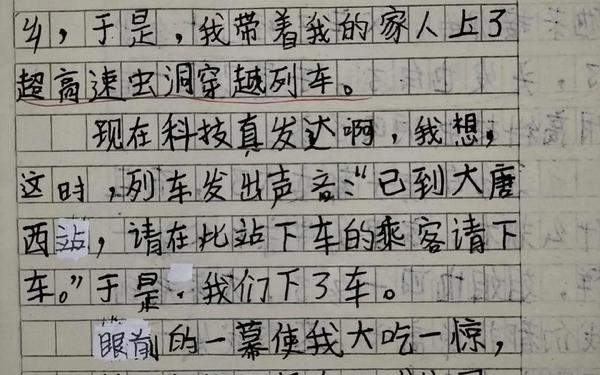 乡，于是，我带着我的家人上了
超高速虫洞穿越列车。
现在科技真发达啊，我想，
这时，列车发出声音：“已到大唐
西站，请在此站下车的乘客请下
车。”于是，我们下了车。
眼前的一幕使我大吃一惊，